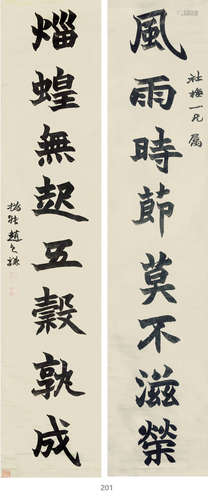 風雨時節莫不滋榮
一兄 屬
蝗無起五穀孰成
撝叔趙之謙
201